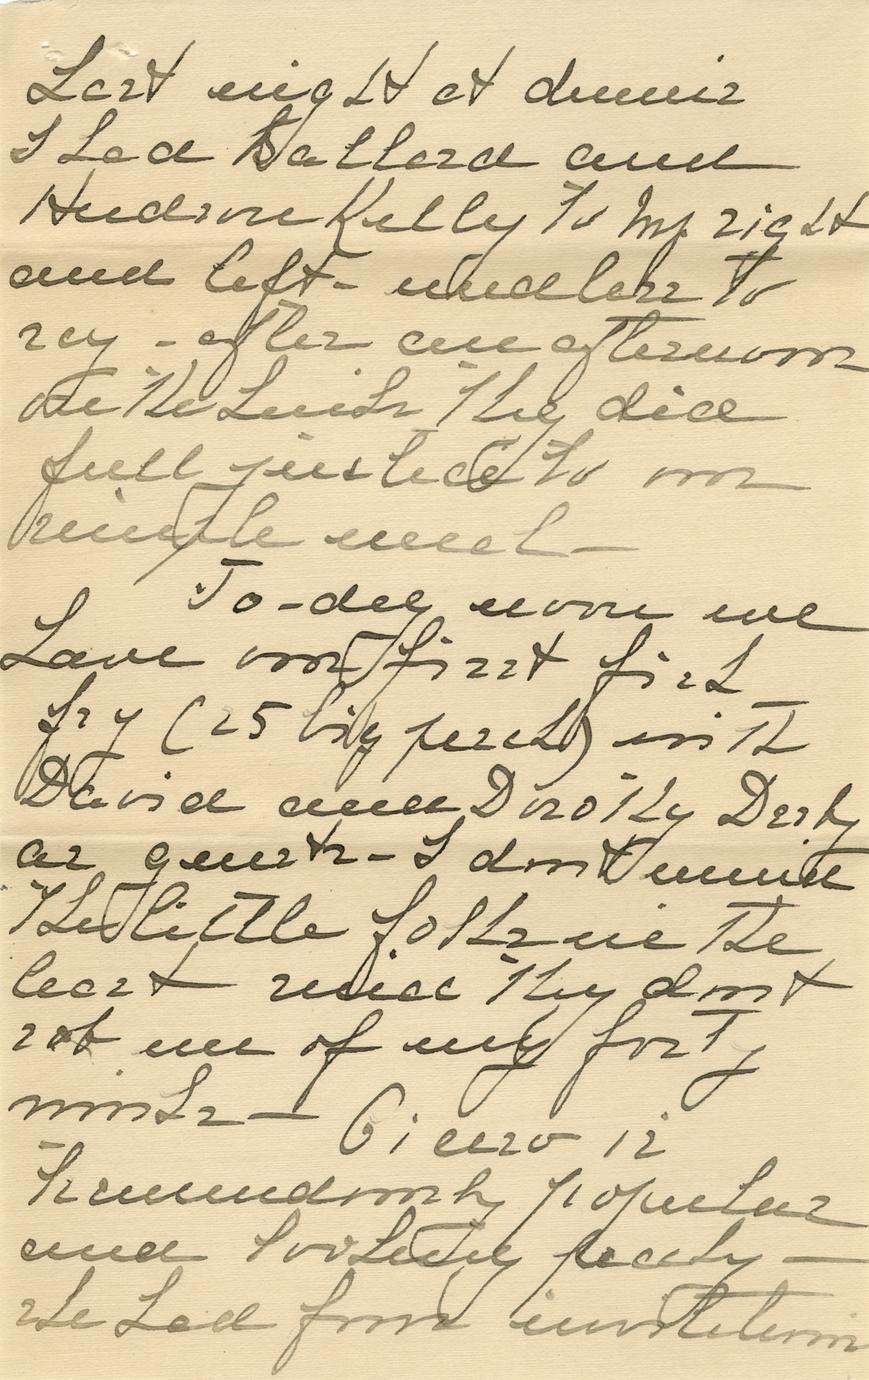 Last night at dinner
I had Ballard and
Hudson Kelly to my right
and left - needless to
say - after an afternoon
on the links they did
full justice to our
simple meal -
To-day noon we
have our first fish
fry (25 big perch) with
David and Dorothy Derby
as guests - I don't mind
the little folks in the
least since they don't
rob me of my forty
winks - is
tremendously popular
and looking peachy -
she had four invitations